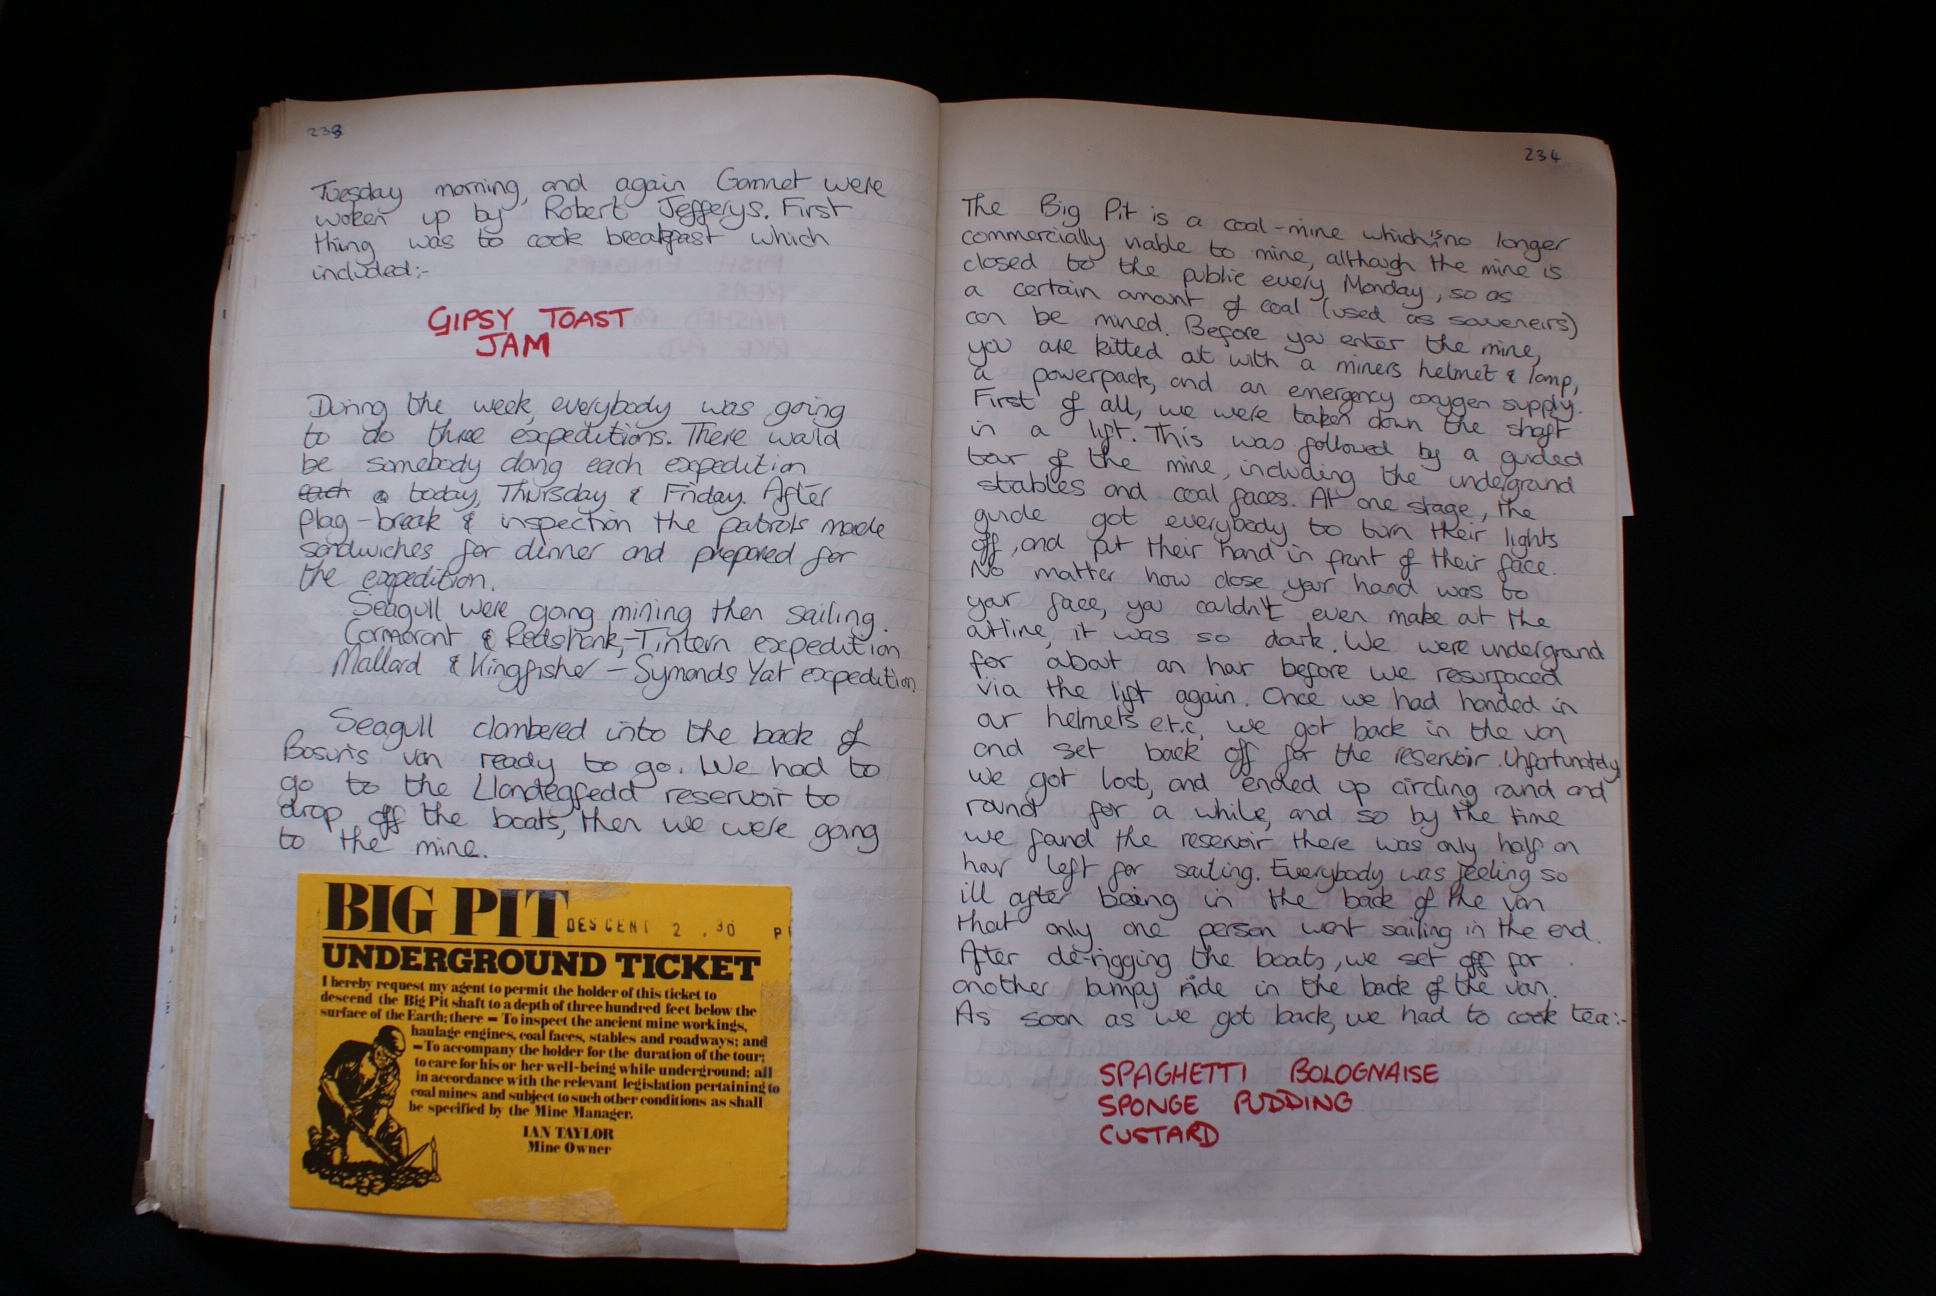 233
Tuesday morning, and again Gannet were
woken up by Robert Jefferys. First
thing was to cook breakfast which
included:-
GIPSY TOAST
JAM
During the week, everybody was going
to do three expeditions. There would
be somebody doing each expedition
each a today, Thursday & Friday. After
flag-break & inspection the patrols made
sandwiches for dinner and prepared for
the expedition.
Seagull were going mining then sailing.
Cormorant & Redshank,-Tintern expedition
Mallard & Kingfisher - Symonds Yat expedition
Seagull clambered into the back of
Bosun's van ready to go. We had to
go to the Llandegfedd reservoir to
drop off the boats, then we were going
to the mine.
BIG PIT DESCENT 2 .30 P
UNDERGROUND TICKET
I hereby request my agent to permit the holder of this ticket to
descend the Big Pit shaft to a depth of three hundred feet below the
surface of the Earth; there – To inspect the ancient mine workings,
haulage engines, coal faces, stables and roadways; and
–To accompany the holder for the duration of the tour;
to care for his or her well-being while underground; all
in accordance with the relevant legislation pertaining to
coal mines and subject to such other conditions as shall
be specified by the Mine Manager.
IAN TAYLOR
Mine Owner
234
The Big Pit is a coal-mine which is no longer
commercially viable to mine, although the mine is
closed to the public every Monday, so as
a certain amount of coal (used as souveneirs)
can be mined. Before you enter the mine,
you are kitted out with a miners helmet & lamp,
a powerpack, and an emergency oxygen supply.
First of all, we were taken down the shaft
in a lift. This was followed by a guided
tour of the mine, including the underground
stables and coal faces. At one stage, the
guide got everybody to turn their lights
off, and put their hand in front of their face.
No matter how close your hand was to
your face, you couldn't even make out the
outline, it was so dark. We were underground
for about an hour before we resurfaced
via the lift again. Once we had handed in
our helmets e.t.c, we got back in the van
and set back off for the reservoir. Unfortunately
we got lost, and ended up circling round and
round for a while, and so by the time
we found the reservoir there was only half an
hour left for sailing. Everybody was feeling so
ill after being in the back of the van
that only one person went sailing in the end.
After de-rigging the boats, we set off for
another bumpy ride in the back of the van.
As soon as we got back, we had to cook tea:-
SPAGHETTI BOLOGNAISE
SPONGE PUDDING
CUSTARD